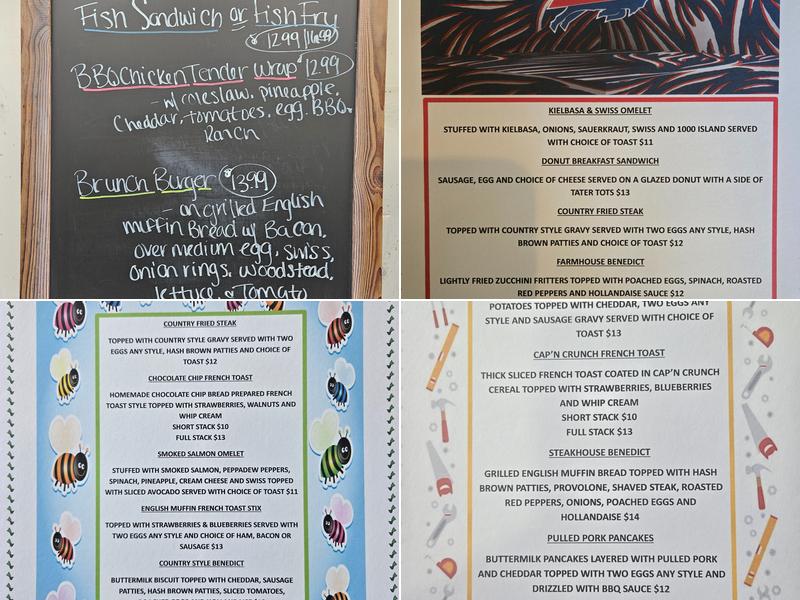 Fish Sandwich or Fish Fry
12.99/16.99
BBQ Chicken Tender Wrap 12.99
- w/ coleslaw, pineapple,
Cheddar, tomatoes, egg, BBQ
Ranch
Brunch Burger $13.99
- on grilled English
muffin Bread w/ Bacon,
over medium egg, swiss,
onion rings, woodstead,
lettuce, & Tomato
KIELBASA & SWISS OMELET
STUFFED WITH KIELBASA, ONIONS, SAUERKRAUT, SWISS AND 1000 ISLAND SERVED
WITH CHOICE OF TOAST $11
DONUT BREAKFAST SANDWICH
SAUSAGE, EGG AND CHOICE OF CHEESE SERVED ON A GLAZED DONUT WITH A SIDE OF
TATER TOTS $13
COUNTRY FRIED STEAK
TOPPED WITH COUNTRY STYLE GRAVY SERVED WITH TWO EGGS ANY STYLE, HASH
BROWN PATTIES AND CHOICE OF TOAST $12
FARMHOUSE BENEDICT
LIGHTLY FRIED ZUCCHINI FRITTERS TOPPED WITH POACHED EGGS, SPINACH, ROASTED
RED PEPPERS AND HOLLANDAISE SAUCE $12
COUNTRY FRIED STEAK
TOPPED WITH COUNTRY STYLE GRAVY SERVED WITH TWO
EGGS ANY STYLE, HASH BROWN PATTIES AND CHOICE OF
TOAST $12
CHOCOLATE CHIP FRENCH TOAST
HOMEMADE CHOCOLATE CHIP BREAD PREPARED FRENCH
TOAST STYLE TOPPED WITH STRAWBERRIES, WALNUTS AND
WHIP CREAM
SHORT STACK $10
FULL STACK $13
SMOKED SALMON OMELET
STUFFED WITH SMOKED SALMON, PEPPADEW PEPPERS,
SPINACH, PINEAPPLE, CREAM CHEESE AND SWISS TOPPED
WITH SLICED AVOCADO SERVED WITH CHOICE OF TOAST $11
ENGLISH MUFFIN FRENCH TOAST STIX
TOPPED WITH STRAWBERRIES & BLUEBERRIES SERVED WITH
TWO EGGS ANY STYLE AND CHOICE OF HAM, BACON OR
SAUSAGE $13
COUNTRY STYLE BENEDICT
BUTTERMILK BISCUIT TOPPED WITH CHEDDAR, SAUSAGE
PATTIES, HASH BROWN PATTIES, SLICED TOMATOES,
POTATOES TOPPED WITH CHEDDAR, TWO EGGS ANY
STYLE AND SAUSAGE GRAVY SERVED WITH CHOICE OF
TOAST $13
CAP'N CRUNCH FRENCH TOAST
THICK SLICED FRENCH TOAST COATED IN CAP'N CRUNCH
CEREAL TOPPED WITH STRAWBERRIES, BLUEBERRIES
AND WHIP CREAM
SHORT STACK $10
FULL STACK $13
STEAKHOUSE BENEDICT
GRILLED ENGLISH MUFFIN BREAD TOPPED WITH HASH
BROWN PATTIES, PROVOLONE, SHAVED STEAK, ROASTED
RED PEPPERS, ONIONS, POACHED EGGS AND
HOLLANDAISE $14
PULLED PORK PANCAKES
BUTTERMILK PANCAKES LAYERED WITH PULLED PORK
AND CHEDDAR TOPPED WITH TWO EGGS ANY STYLE AND
DRIZZLED WITH BBQ SAUCE $12